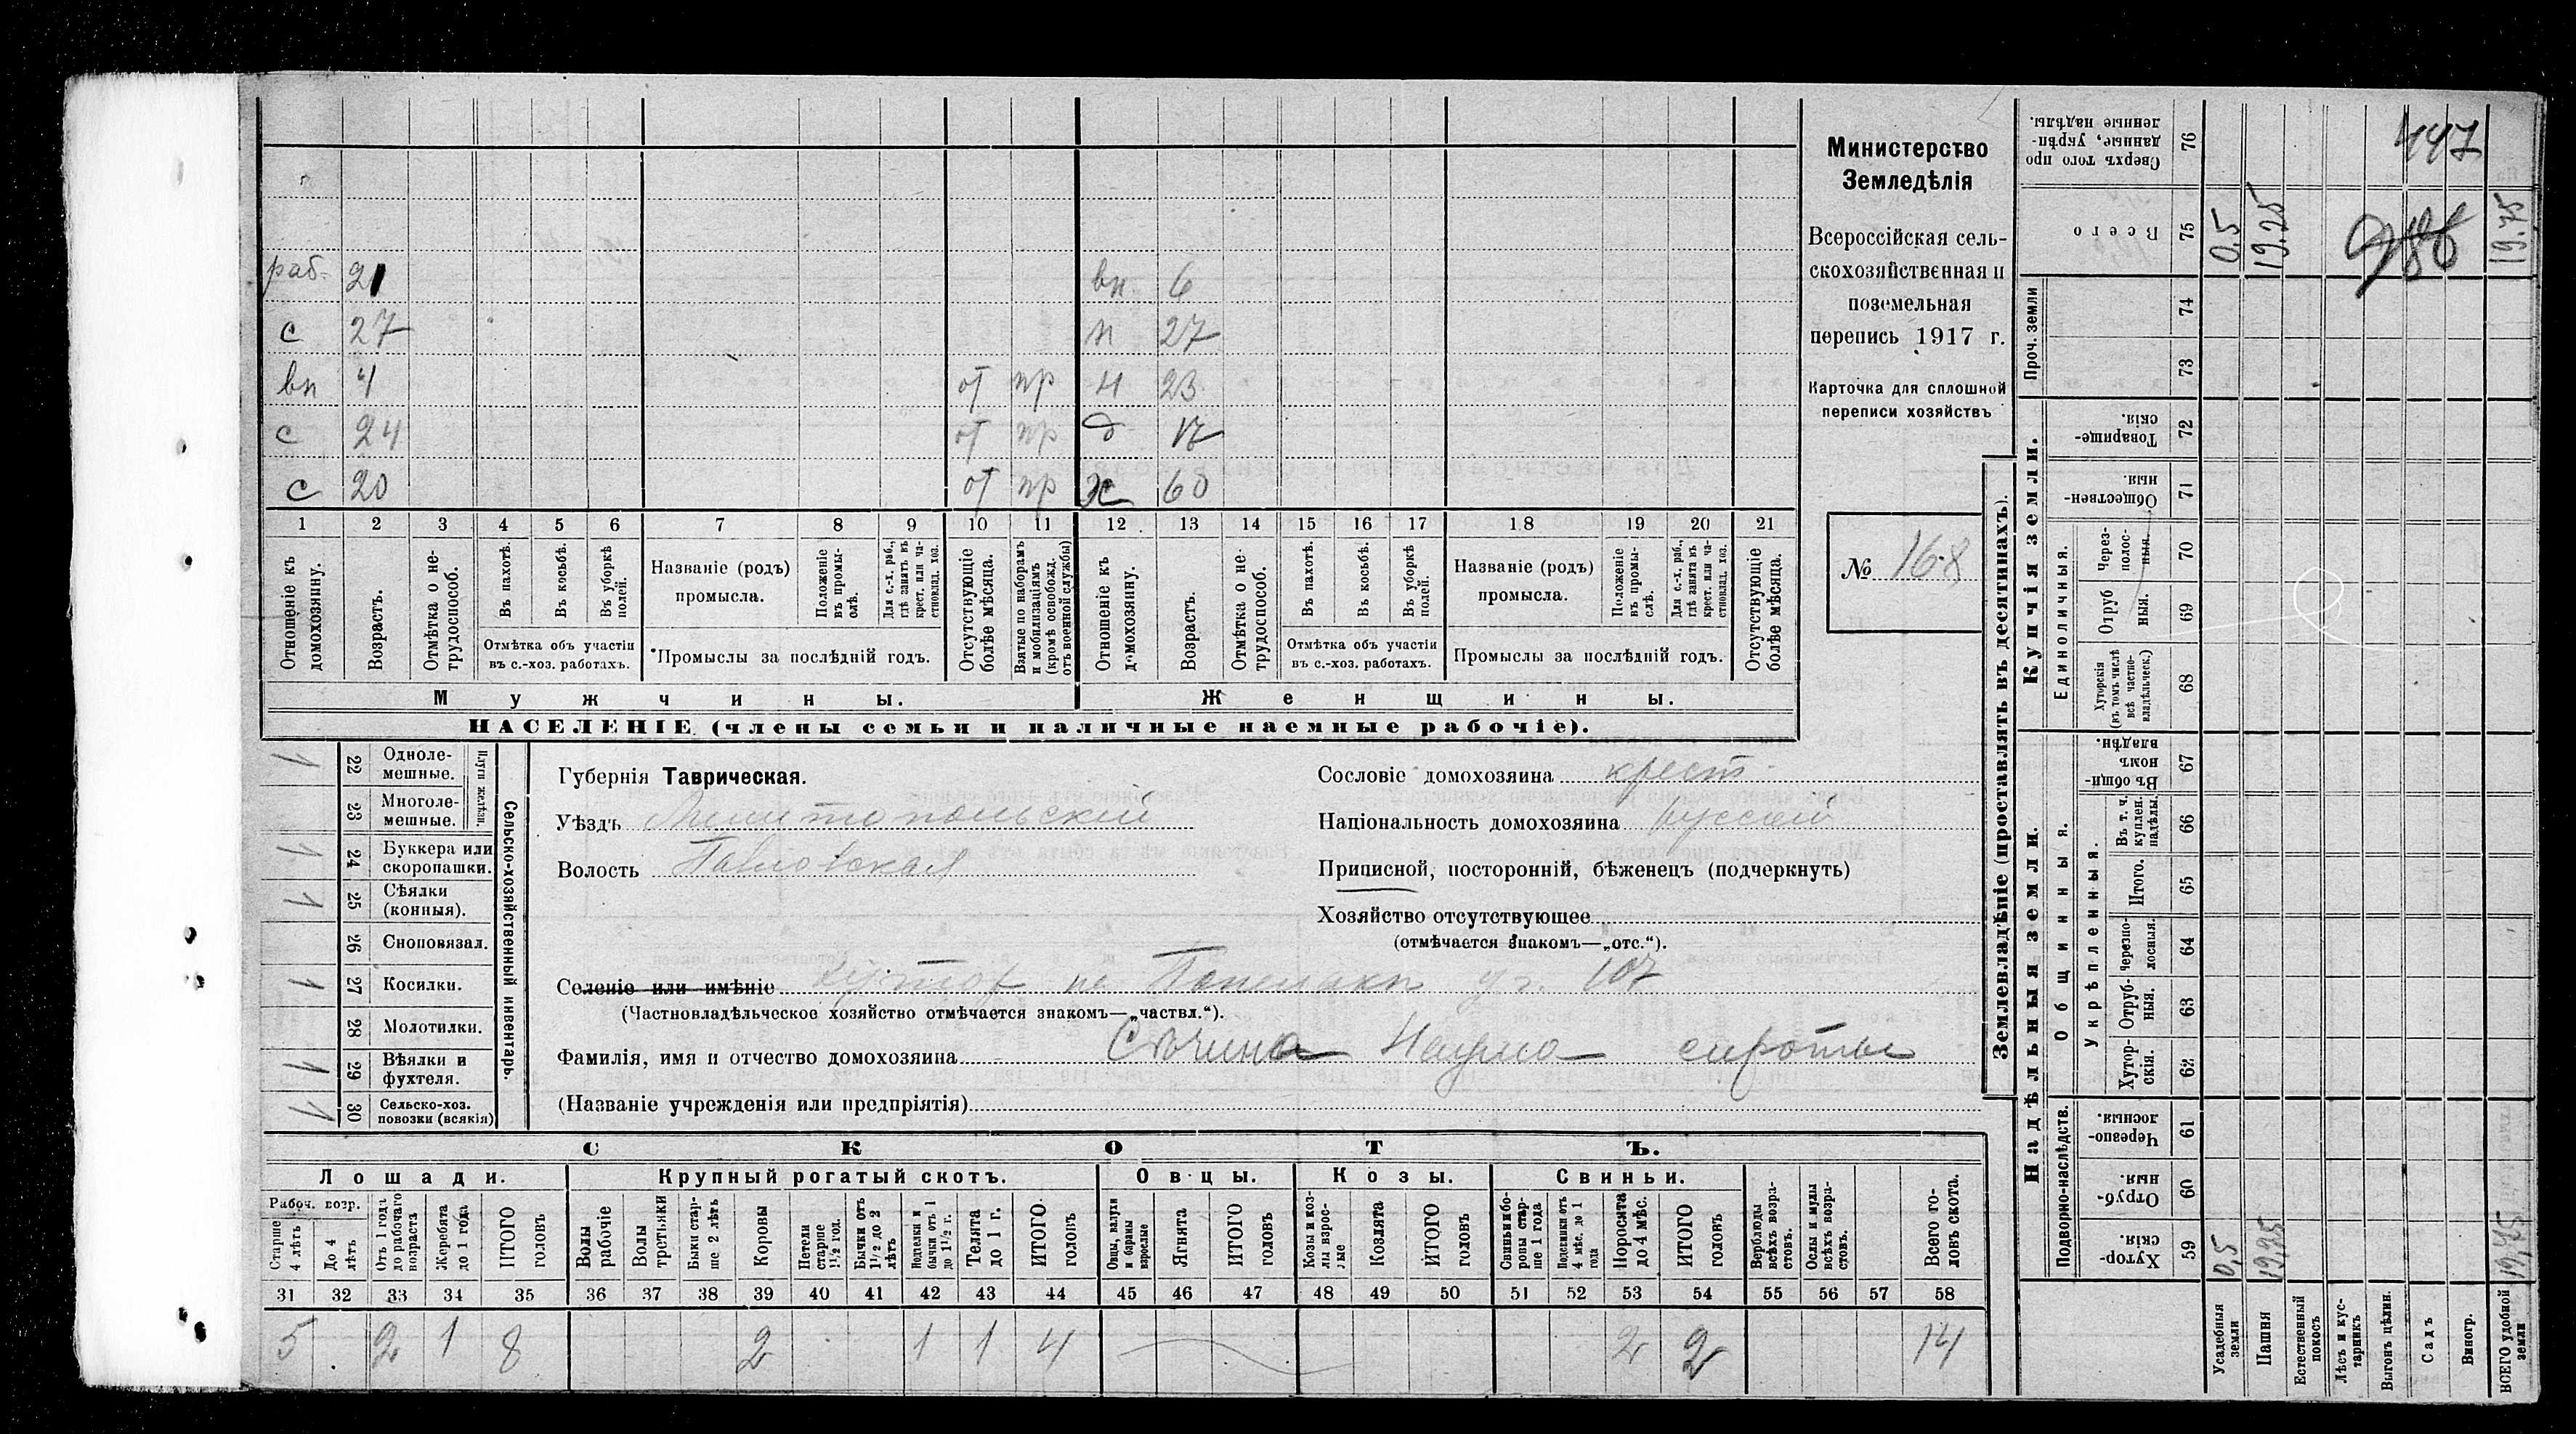 раб. 21 вн 6
с 27 н 27
вн 4 от пр н 23
с 24 от пр д 17
с 20 от пр ж 60
1 2 3 4 5 6 7 8 9 10 11 12 13 14 15 16 17 18 19 20 21
Отношеніе къ домохозяину.
Возрастъ.
Отмѣтка о нетрудоспособ.
Въ пахотѣ.
Въ косьбѣ.
Въ уборкѣ полей.
Отмѣтка объ участіи въ с.-хоз. работахъ.
Названіе (родъ) промысла.
Положеніе въ промыслѣ.
Для с.-х. раб., гдѣ занятъ въ крест. или частновлад. хоз.
Промыслы за послѣдній годъ.
Отсутствующіе болѣе мѣсяца.
Взятые по наборамъ и мобилизаціямъ (кромѣ освобожд. отъ военной службы)
Отношеніе къ домохозяину.
Возрастъ.
Отмѣтка о нетрудоспособ.
Въ пахотѣ.
Въ косьбѣ.
Въ уборкѣ полей.
Отмѣтка объ участіи въ с.-хоз. работахъ.
Названіе (родъ) промысла.
Положеніе въ промыслѣ.
Для с.-х. раб., гдѣ занята въ крест. или частновлад. хоз.
Промыслы за послѣдній годъ.
Отсутствующіе болѣе мѣсяца.
Мужчины. Женщины.
НАСЕЛЕНІЕ (члены семьи и наличные наемные рабочіе).
Министерство
Земледѣлія
Всероссійская сель-
скохозяйственная и
поземельная
перепись 1917 г.
Карточка для сплошной
переписи хозяйствъ
№ 168
Сельско-хозяйственный инвентарь.
Плуги желѣзн.
1 22 Однолемешные.
23 Многолемешные.
1 24 Буккера или скоропашки.
1 25 Сѣялки (конныя).
26 Сноповязал.
1 27 Косилки.
28 Молотилки.
1 29 Вѣялки и фухтеля.
1 30 Сельско-хоз. повозки (всякія)
Губернія Таврическая.
Уѣздъ Мелитопольскій
Волость Павловская
Сословіе домохозяина крест.
Національность домохозяина русскій
Приписной, посторонній, бѣженецъ (подчеркнуть)
Хозяйство отсутствующее
(отмѣчается знакомъ—„отс.“).
Селеніе или имѣніе хутор уч. 107
(Частновладѣльческое хозяйство отмѣчается знакомъ—„частвл.“).
Фамилія, имя и отчество домохозяина Наума сироты
(Названіе учрежденія или предпріятія)
СКОТЪ.
Лошади. Крупный рогатый скотъ. Овцы. Козы. Свиньи.
Рабоч. возр.
Старше 4 лѣтъ
До 4 лѣтъ
Отъ 1 года до рабочаго возраста
Жеребята до 1 года
ИТОГО головъ
Волы рабочіе
Волы третьяки
Быки старше 2 лѣтъ
Коровы
Нетели старше 1 1/2 год.
Бычки отъ 1 1/2 до 2 лѣтъ
Нетелки и бычки отъ 1 до 1 1/2 г.
Телята до 1 г.
ИТОГО головъ
Овцы, валухи и бараны взрослые
Ягнята
ИТОГО головъ
Козы и козлы взрослые
Козлята
ИТОГО головъ
Свиньи и боровы старше 1 года
Подсвинки отъ 4 мѣс. до 1 года
Поросита до 4 мѣс.
ИТОГО головъ
Верблюды всѣхъ возрастовъ.
Ослы и мулы всѣхъ возрастовъ.
Всего головъ скота.
31 32 33 34 35 36 37 38 39 40 41 42 43 44 45 46 47 48 49 50 51 52 53 54 55 56 57 58
5 2 1 8 2 1 1 4 2 2 14
Землевладѣніе (проставлять въ десятинахъ).
Надѣльныя земли. Купчія земли. Проч. земли
Подворно-наслѣдств. Общинныя. Единоличныя.
Укрѣпленныя.
Сверхъ того проданные, укрѣпленные надѣлы. 76
Всего 75 0.5 19.25 19.75
447
986
74
73
Товарищескія. 72
Общественныя. 71
Черезполосныя. 70
Отрубныя. 69
Хуторскія (въ томъ числѣ всѣ частновладѣльческ.) 68
Въ общинномъ владѣн. 67
Въ т. ч. куплен. надѣлы. 66
Итого. 65
Черезполосныя. 64
Отрубныя. 63
Хуторскія. 62
Черезполосныя. 61
Отрубныя. 60
Хуторскія. 59 0,5 19,25 19,75
Усадебныя земли
Пашня
Естественный покосъ
Лѣсъ и кустарникъ
Выгонъ цѣлин.
Садъ
Виногр.
ВСЕГО удобной земли